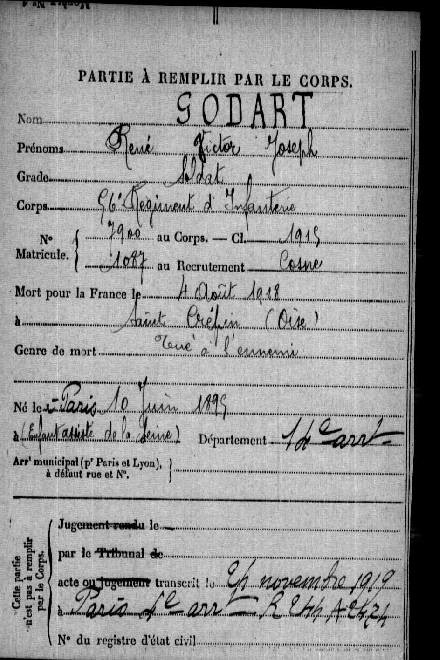 PARTIE À REMPLIR PAR LE CORPS.
Nom GODART
Prénoms René Victor Joseph
Grade Soldat
Corps 56e Régiment d'Infanterie
N° Matricule. 7900 au Corps. — Cl. 1915
1087 au Recrutement Cosne
Mort pour la France le 4 Août 1918
à Saint Crépin (Oise)
Genre de mort Tué à l'ennemi
Né le Paris 10 Juin 1895
à (Enfant assisté de la Seine) Département 14e arrt
Arrt municipal (pr Paris et Lyon), à défaut rue et N°.
Cette partie n'est pas à remplir par le Corps.
Jugement rendu le
par le Tribunal de
acte ou jugement transcrit le novembre 1919
à Paris arrt
N° du registre d'état civil